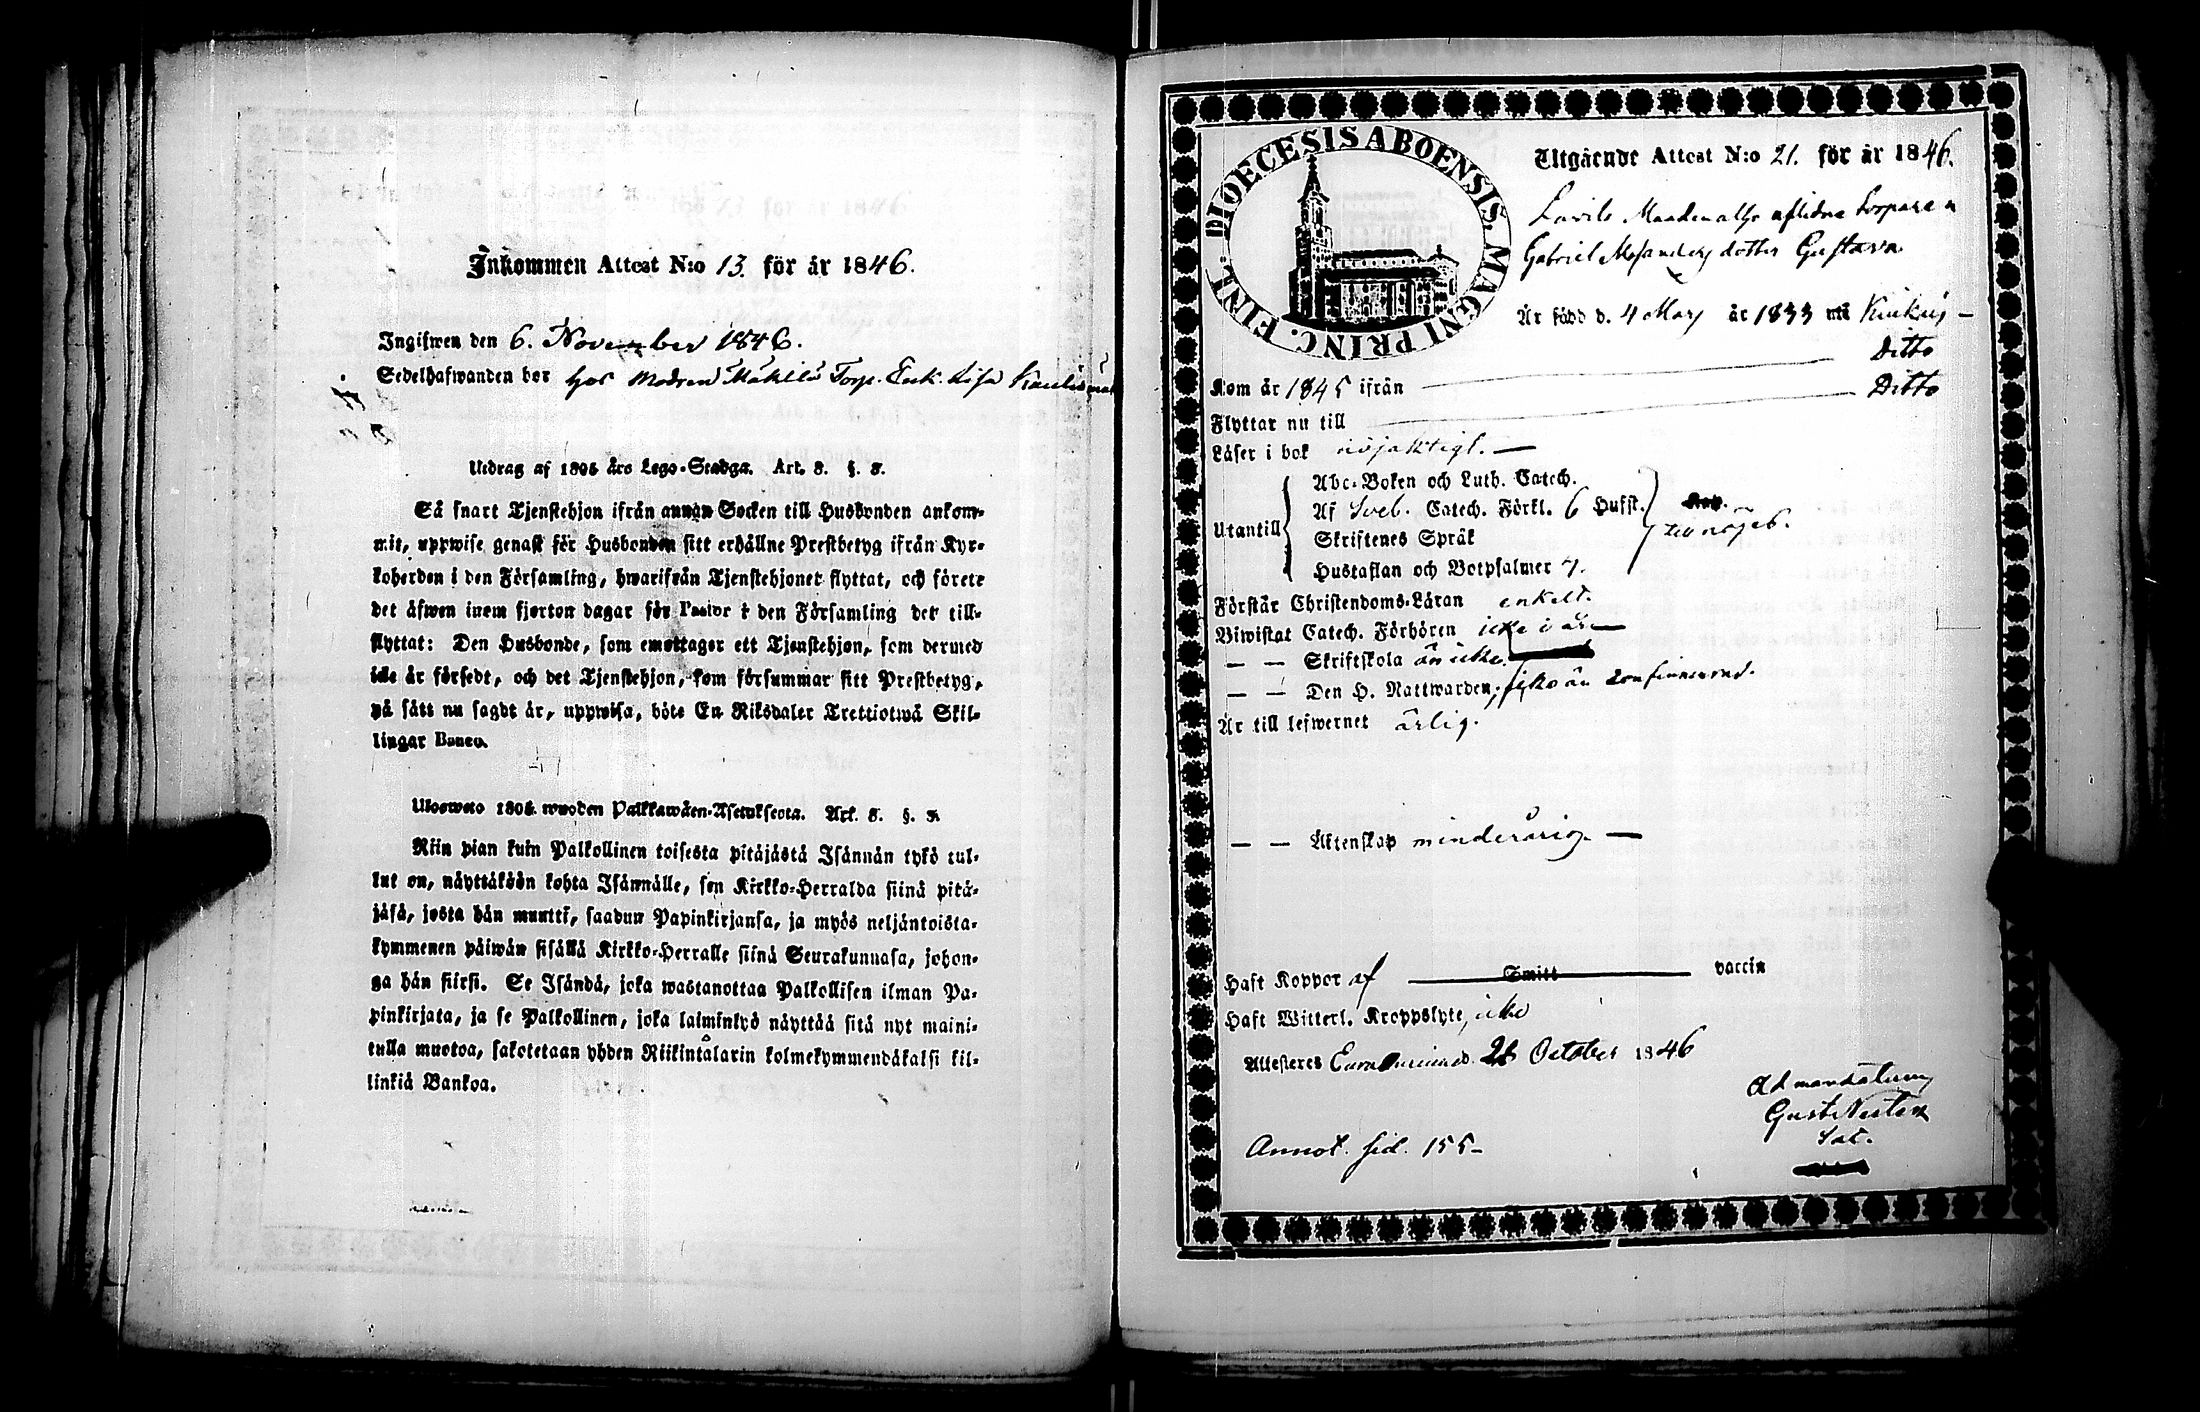 Inkommen Attest N:o 13. för år 1846.
Ingifwen den 6. November 1846.
Sedelhafwanden bor hos Modren Mäkilä Torp. Enk. Lisa
Utdrag af 1805 års Lego-Stadga. Art. 8. §. 8.
Så snart Tjenstehjon ifrån annan Socken till Husbonden ankom-
mit, uppwise genast för Husbonden sitt erhållne Prestbetyg ifrån Kyr-
koherden i den Församling, hwarifrån Tjenstehjonet flyttat, och förete
det äfwen inom fjorton dagar för Pastor i den Församling det till-
flyttat: Den Husbonde, som emottager ett Tjenstehjon, som dermed
icke är försedt, och det Tjenstehjon, som försummar sitt Prestbetyg,
på sätt nu sagdt är, uppwisa, böte En Riksdaler Trettiotwå Skil-
lingar Banco.
Ulosweto 1805 wuoden Palkkawäen-Asetuksesta. Art. 8. §. 8.
Niin pian kuin Palkollinen toisesta pitäjästä Isännän tykö tul-
lut on, näyttäköön kohta Isännälle, sen Kirkko-Herralda siinä pitä-
jäsä, josta hän muutti, saadun Papinkirjansa, ja myös neljäntoista-
kymmenen päiwän sisällä Kirkko-Herralle siinä Seurakunnasa, johon-
ga hän siirsi. Se Isändä, joka wastanottaa Palkollisen ilman Pa-
pinkirjata, ja se Palkollinen, joka laiminlyö näyttää sitä nyt maini-
tulla muotoa, sakotetaan yhden Riikintålarin kolmekymmendäkaksi kil-
linkiä Bankoa.
DIOECESIS ABOENSIS. MAGNI PRINC. FINL.
Utgående Attest N:o 21. för år 1846.
Lavila aflidne torparen
Gabriel dotter Gustava
Är född d. 4 Mars år 1833 uti Kiukais –
Kom år 1845 ifrån Ditto
Flyttar nu till Ditto
Läser i bok nöjaktigt. –
Utantill
Abc-Boken och Luth. Catech.
Af Sveb. Catech. Förkl. 6 Hufst.
Skriftenes Språk
Hustaflan och Botpsalmer 7.
till nöjes.
Förstår Christendoms-Läran enkelt.
Biwistat Catech. Förhören icke i år –
— — Skriftskola än icke.
— — Den H. Nattwarden, icke än confirmerad.
Är till lefwernet ärlig.
— — Äktenskap minderårig. –
Haft Koppor af Smitt vaccin
Haft Witterl. Kroppslyte, icke
Attesteres Euraåminne d. October 1846
Ad mandatum
Gust. Nesten
Sac.
Annot. sid. 155 –